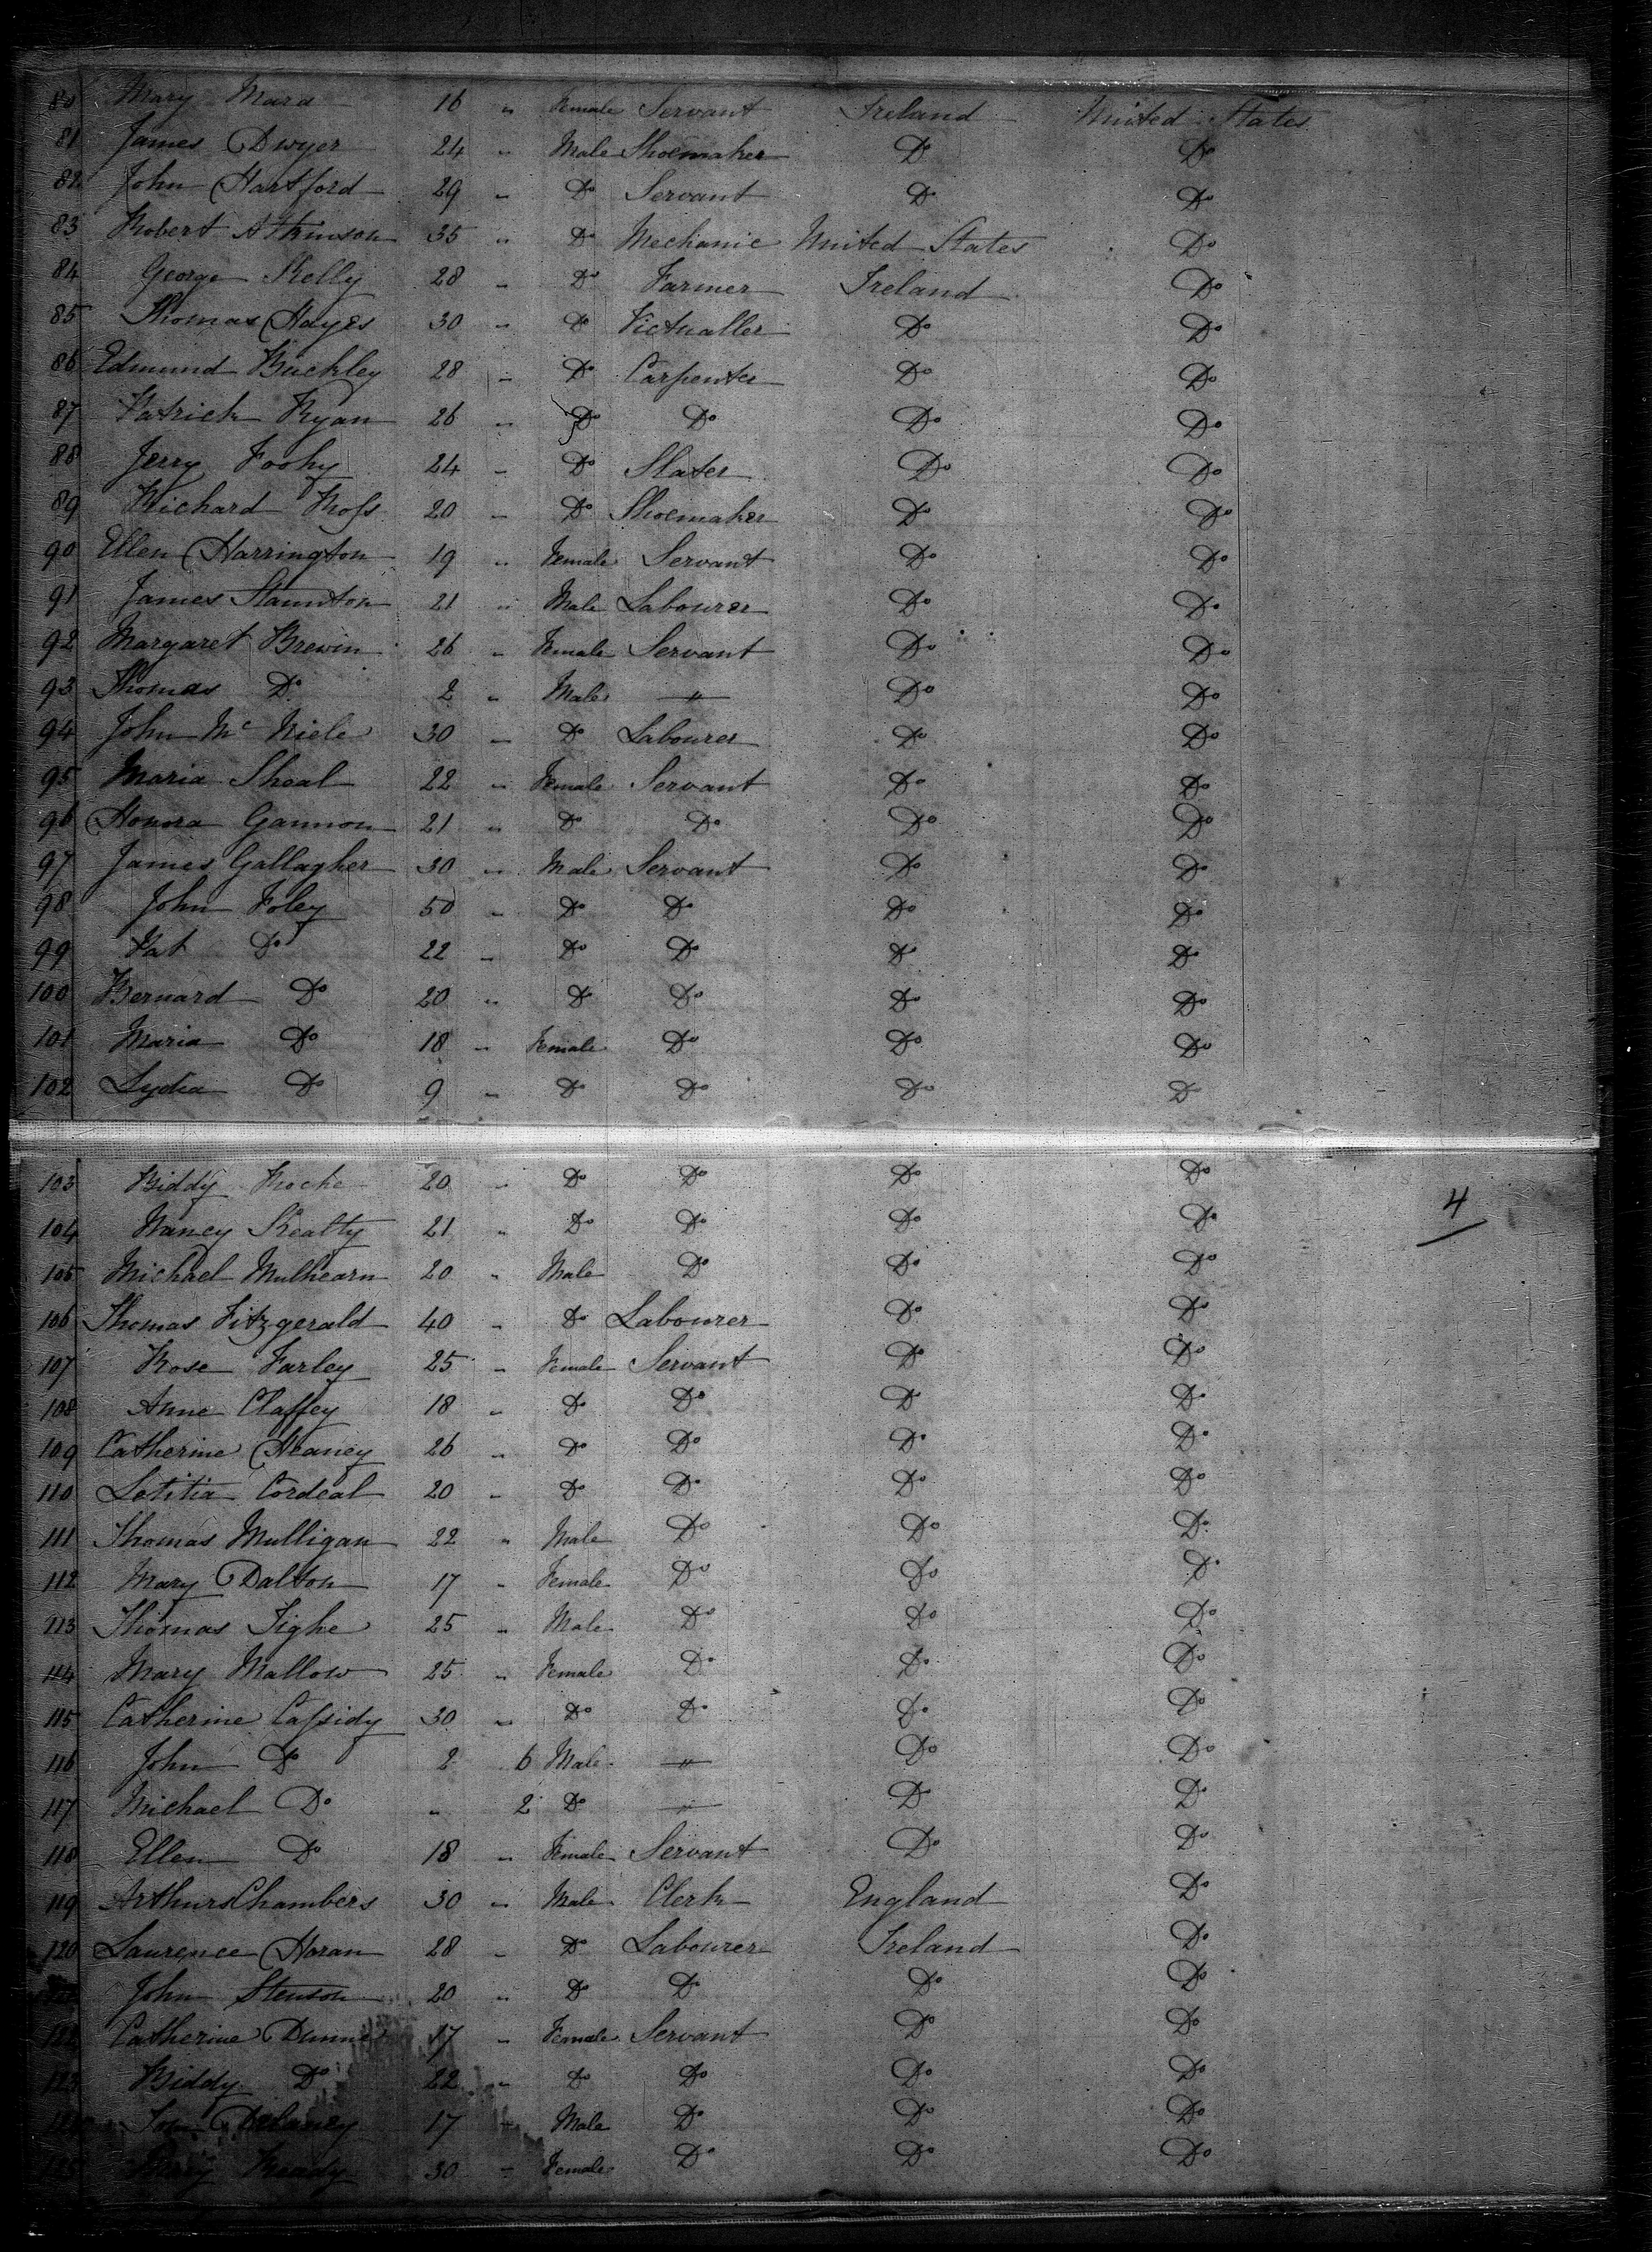 80 Mary Mara 16 " Female Servant Ireland United States
81 James Dwyer 24 " Male Shoemaker Do Do
82 John Hartford 29 " Do Servant Do Do
83 Robert Atkinson 35 " Do Mechanic United States Do
84 George Skelly 28 " Do Farmer Ireland Do
85 Thomas Hayes 30 " Do Victualler Do Do
86 Edmund Buckley 28 " Do Carpenter Do Do
87 Patrick Ryan 26 " Do Do Do Do
88 Jerry Foohy 24 " Do Slater Do Do
89 Richard Ross 20 " Do Shoemaker Do Do
90 Ellen Harrington 19 " Female Servant Do Do
91 James Staunton 21 " Male Labourer Do Do
92 Margaret Brewin 26 " Female Servant Do Do
93 Thomas Do 2 " Male " Do Do
94 John Mc Niele 30 " Do Labourer Do Do
95 Maria Sheal 22 " Female Servant Do Do
96 Honora Gannon 21 " Do Do Do Do
97 James Gallagher 30 " Male Servant Do Do
98 John Foley 50 " Do Do Do Do
99 Pat Do 22 " Do Do Do Do
100 Bernard Do 20 " Do Do Do Do
101 Maria Do 18 " Female Do Do Do
102 Lydia Do 9 " Do Do Do Do
103 Biddy Roche 20 " Do Do Do Do
4
104 Nancy Kealty 21 " Do Do Do Do
105 Michael Mulhearn 20 " Male Do Do Do
106 Thomas Fitzgerald 40 " Do Labourer Do Do
107 Rose Farley 25 " Female Servant Do Do
108 Anne Claffey 18 " Do Do Do Do
109 Catherine Heaney 26 " Do Do Do Do
110 Letitia Cordeal 20 " Do Do Do Do
111 Thomas Mulligan 22 " Male Do Do Do
112 Mary Dalton 17 " Female Do Do Do
113 Thomas Tighe 25 " Male Do Do Do
114 Mary Mallow 25 " Female Do Do Do
115 Catherine Cassidy 30 " Do Do Do Do
116 John Do 2 6 Male " Do Do
117 Michael Do " 2 Do " Do Do
118 Ellen Do 18 " Female Servant Do Do
119 Arthur Chambers 30 " Male Clerk England Do
120 Laurence Horan 28 " Do Labourer Ireland Do
John Stenson 20 " Do Do Do Do
122 Catherine Dunne 17 " Female Servant Do Do
123 Biddy Do 22 " Do Do Do Do
Delaney 17 " Male Do Do Do
Ready 30 " Female Do Do Do